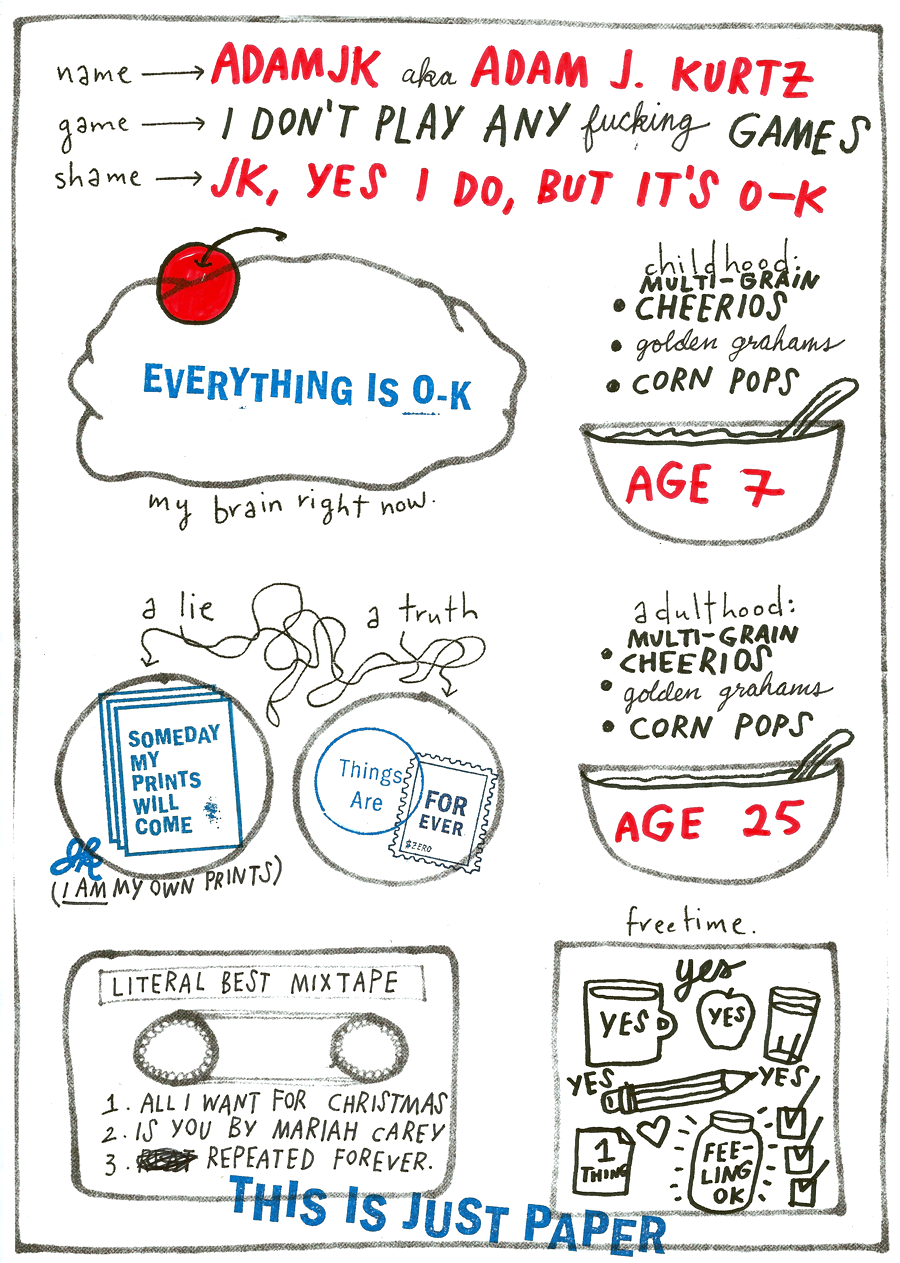 name → ADAMJK aka ADAM J. KURTZ
game → I DON'T PLAY ANY fucking GAMES
shame → JK, YES I DO, BUT IT'S O-K
EVERYTHING IS O-K
my brain right now.
childhood:
MULTI-GRAIN
• CHEERIOS
• golden grahams
• CORN POPS
AGE 7
a lie
a truth
SOMEDAY
MY
PRINTS
WILL
COME
JK
(I AM MY OWN PRINTS)
Things
Are
FOR
EVER
$ZERO
adulthood:
MULTI-GRAIN
• CHEERIOS
• golden grahams
• CORN POPS
AGE 25
LITERAL BEST MIXTAPE
1. ALL I WANT FOR CHRISTMAS
2. IS YOU BY MARIAH CAREY
3. REPEATED FOREVER.
freetime.
yes
YES
YES
YES
YES
1
THING
FEE-
LING
OK
THIS IS JUST PAPER